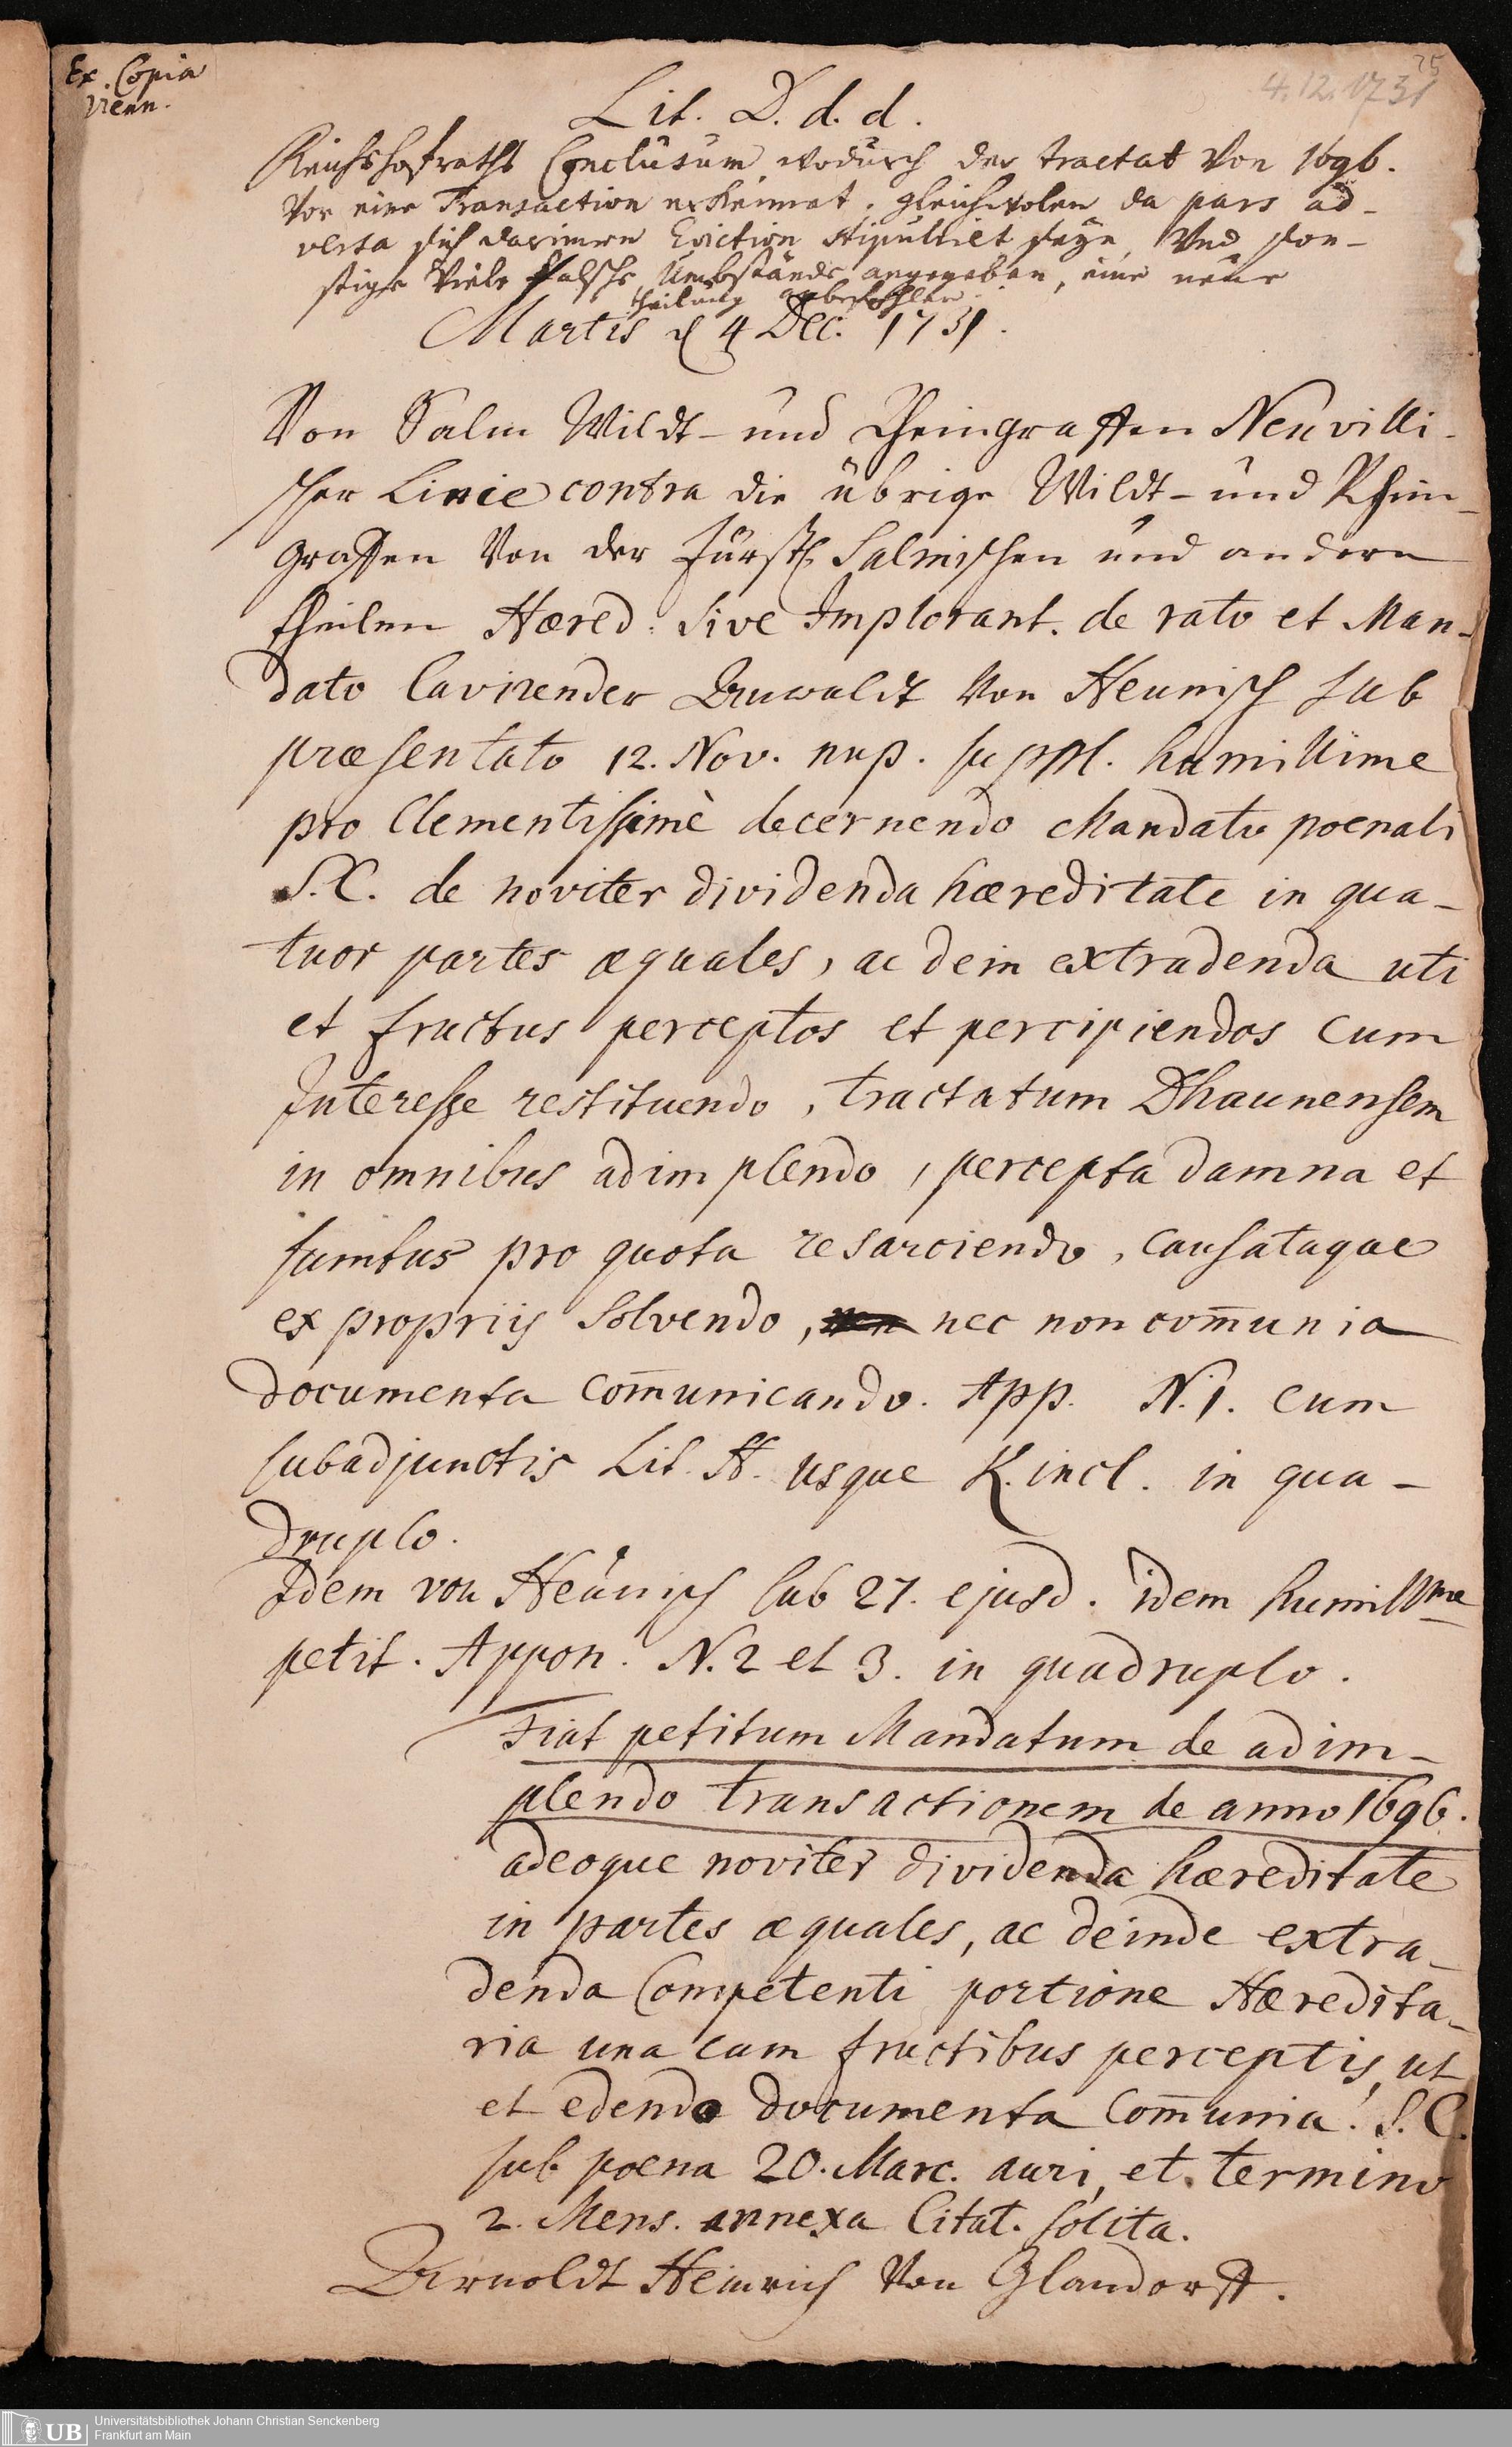 Ex Copia
vienn.
75
4.12.1731
Lit. D. d. d.
Reichshofraths Conclusum, wodurch der tractat von 1696.
vor eine Transaction erkennet, gleichwolen da pars ad-
versa sich darinnen Eviction stipuliret seye, und son-
stige viele falsche Umbstände angegeben, eine neue
theilung anbefohlen.
Martis d 4 Dec. 1731.
Von Salm Wildt- und Rheingraffen Neuvilli-
scher Linie contra die übrige Wildt- und Rhein-
graffen von der Fürstl. Salmischen und andern
theilen Hæred. sive Implorant. de rato et Man-
dato Cavirender Anwaldt von Heunisch sub
præsentato 12. Nov. nup. suppl. humillime
pro Clementissimè decernendo Mandato poenali
S.C. de noviter dividenda hæreditate in qua-
tuor partes æquales, ac dein extradenda uti
et fructus perceptos et percipiendos cum
Interesse restituendo, tractatum Dhaunensem
in omnibus adimplendo, percepta damna et
sumtus pro quota resarciendo, causataque
ex propriis solvendo, nec non com̅unia
documenta com̅unicando. App. N.1. cum
subadjunctis Lit. A. usque K. incl. in qua-
druplo.
Idem von Heünisch sub 27. ejusd. idem humillme
petit. Appon. N.2 et 3. in quadruplo.
Fiat petitum Mandatum de adim-
plendo transactionem de anno 1696.
adeoque noviter dividenda hæreditate
in partes æquales, ac deinde extra-
denda Competenti portione Hæredita-
ria una cum fructibus perceptis, ut
et edendo documenta Com̅unia. S.C.
sub poena 20. Marc. auri, et termino
2. Mens. annexa Citat. solita.
Arnoldt Heinrich von Glandorff.
UB
Universitätsbibliothek Johann Christian Senckenberg
Frankfurt am Main